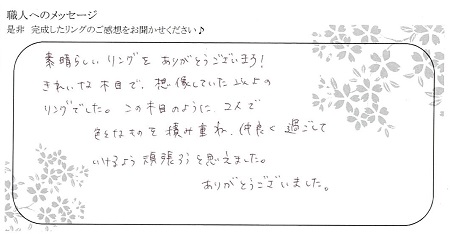 職人へのメッセージ
是非 完成したリングのご感想をお聞かせください♪
素晴らしいリングをありがとうございます!
きれいな木目で、想像していた以上の
リングでした。この木目のように、2人で
色々なものを積み重ね、仲良く過ごして
いけるよう頑張ろうと思えました。
ありがとうございました。